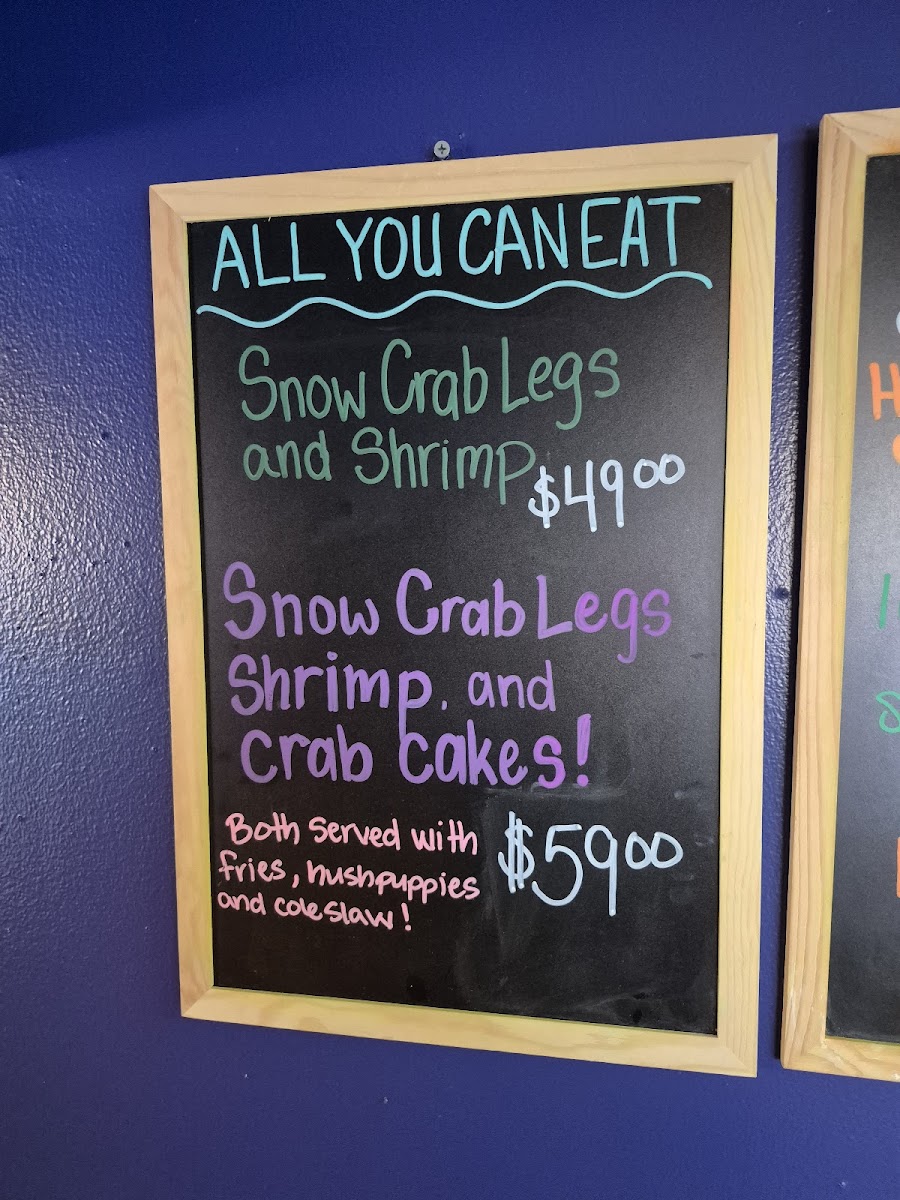 ALL YOU CAN EAT
Snow Crab Legs
and Shrimp
$49.00
Snow Crab Legs
Shrimp, and
Crab Cakes!
Both Served with
fries, hushpuppies
and coleslaw!
$59.00